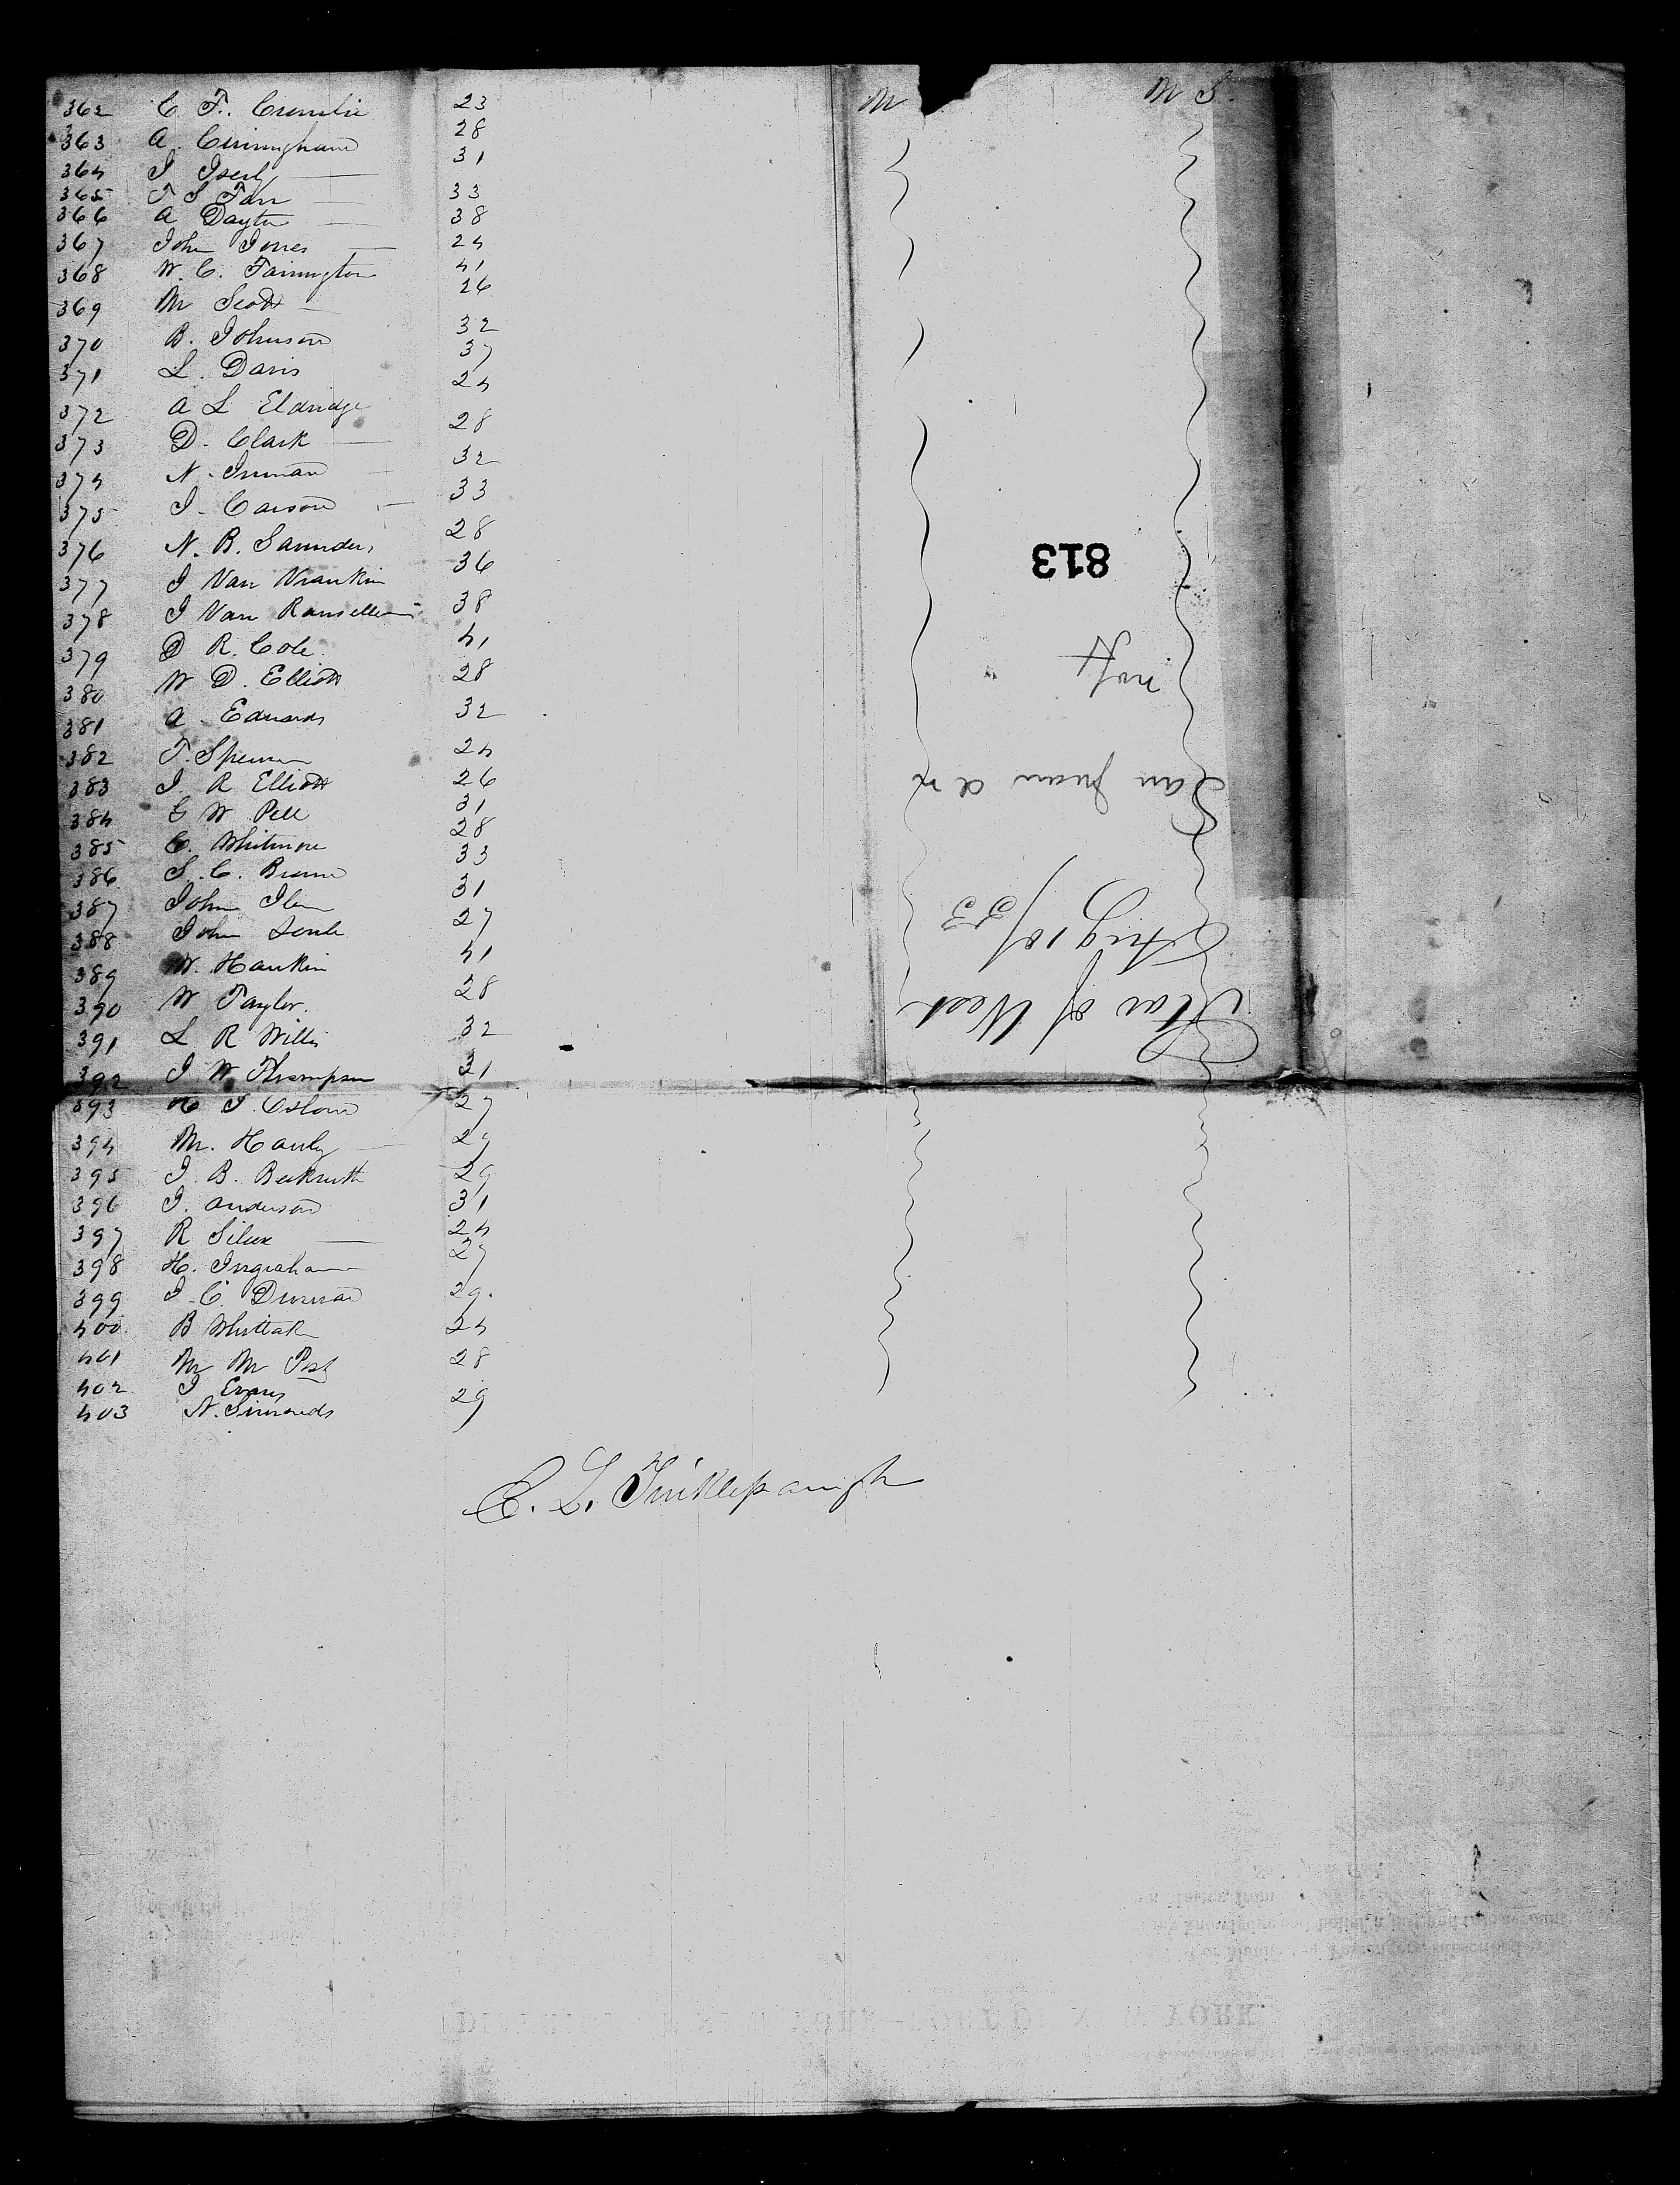 362 C. F. Crumlie 23 M M S.
363 A. Cunningham 28
364 J 31
365 T S Farr 33
366 A Dayton 38
367 John Jones 24
368 W. C. Farrington 41
369 M Scott 26
370 B. Johnson 32
371 L. Davis 37
372 A L Eldridge 24
373 D. Clark 28
374 N. Inman 32
375 J. Carson 33
376 N. B. Saunders 28
377 J Van Vrankin 36
378 J Van Ransellear 38
379 D R. Cole 41
380 W D. Elliott 28
381 A. Edwards 32
382 T. Spencer 24
383 J. R Elliott 26
384 C W Pell 31
385 C. Whitmore 28
386 S. C. Brown 33
387 John 31
388 John Soule 27
389 W. Hankin 41
390 W Taylor. 28
391 L R Willis 32
392 J W Thompson 31
393 H J. Osborn 27
394 M. Hanly 29
395 J. B. Beckwith 29
396 J. Anderson 31
397 R Silux 24
398 H. Ingraham 27
399 J. C. Duncan 29.
400 B Whittak 24
401 M M Post 28
402 J Evans
403 N. Simonds 29
C. L. Tinklepaugh
Star of West
Aug 10/53
San Juan
not
813